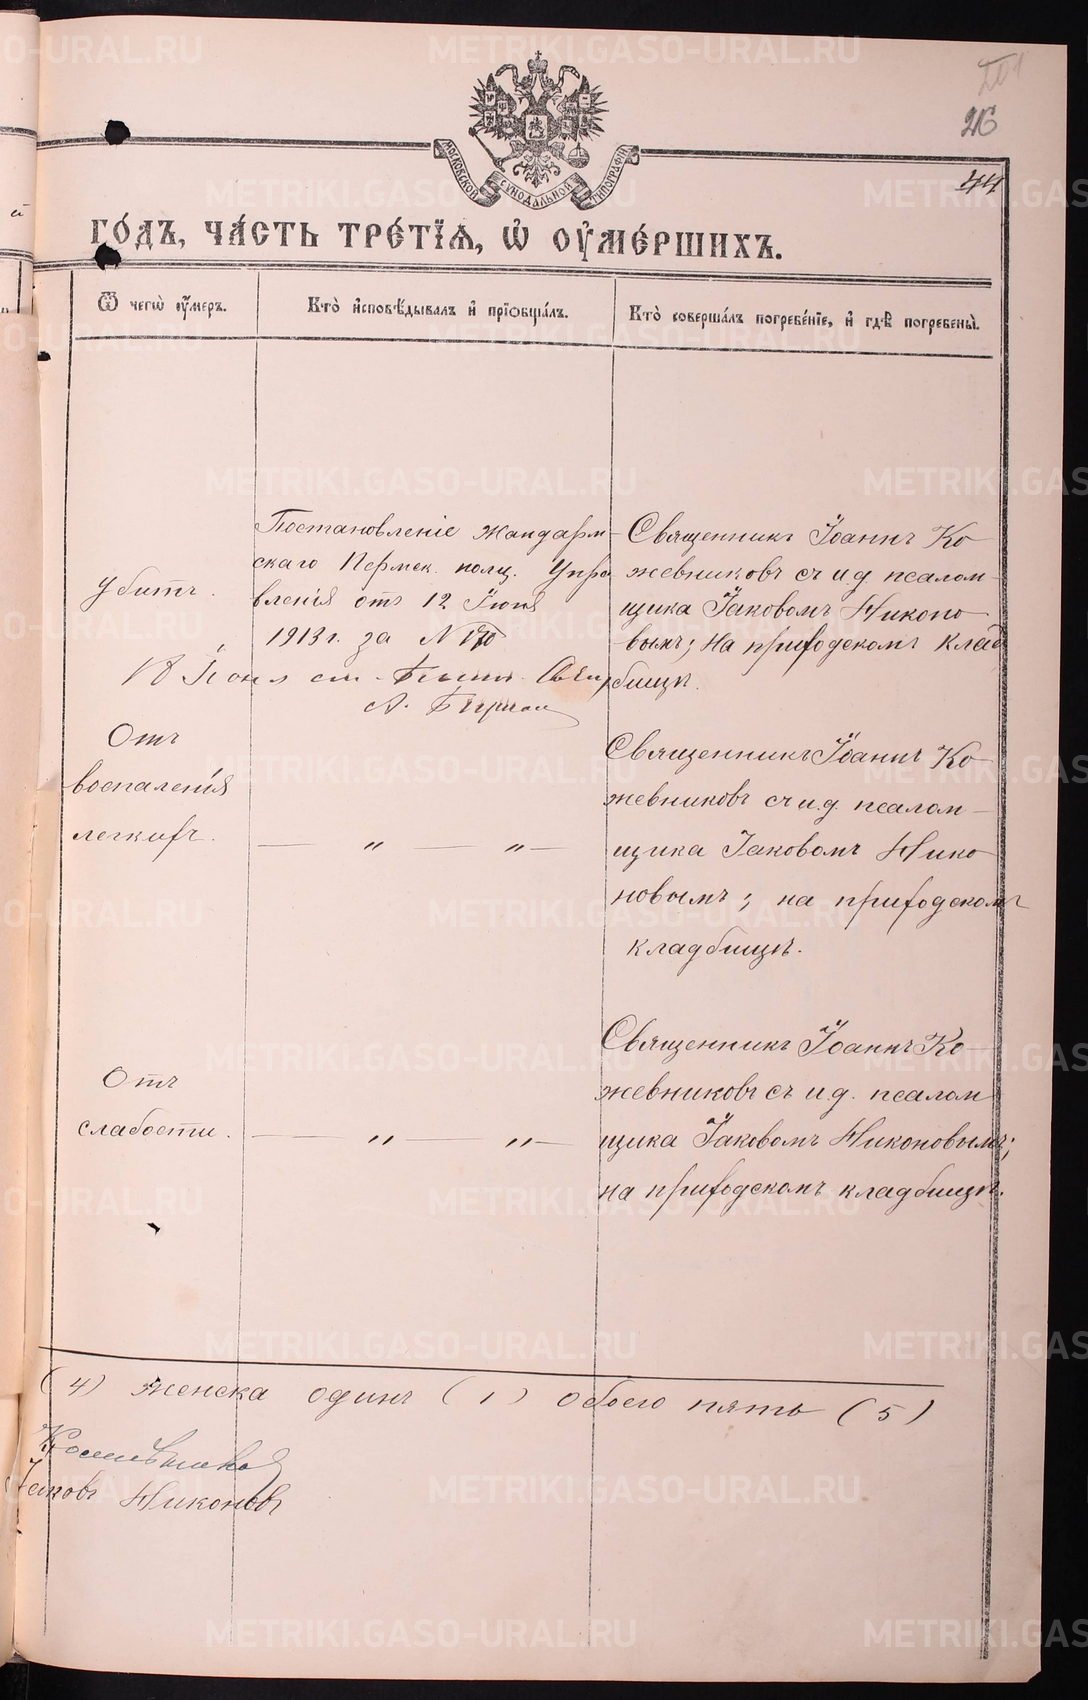 216
44
МОСКОВСКОЙ СѴНОДАЛЬНОЙ ТИПОГРАФІИ
ГО́ДЪ, ЧА́СТЬ ТРЕ́ТЇѦ, Ѡ҆ ОУ҆МЕ́РШИХЪ.
Ѿ чегѡ̀ оу҆́меръ.
Кто̀ и҆сповѣ́дывалъ и҆ прїѡбща́лъ.
Кто̀ соверша́лъ погребе́нїе, и҆ гдѣ̀ погребены̀.
Убитъ.
Постановленіе жандарм-
скаго Пермск. полиц. Упра
вленія отъ 12 Іюня
1913 г. за N
18 Іюня ст.
А.
Священникъ Іоаннъ Ко
жевниковъ съ и.д. псалом-
щика Іаковомъ Никоно
вымъ; на приходскомъ клад
бищѣ.
Отъ
воспаленія
легкихъ.
— " — " —
Священникъ Іоаннъ Ко-
жевниковъ съ и.д. псалом-
щика Іаковомъ Нико
новымъ; на приходскомъ
кладбищѣ.
Отъ
слабости.
— " — " —
Священникъ Іоаннъ Ко-
жевниковъ съ и.д. псалом
щика Іаковомъ Никоновымъ;
на приходскомъ кладбищѣ.
(4) женска одинъ (1) обоего пять (5)
Кожевниковъ
Іаковъ Никоновъ
METRIKI.GASO-URAL.RU